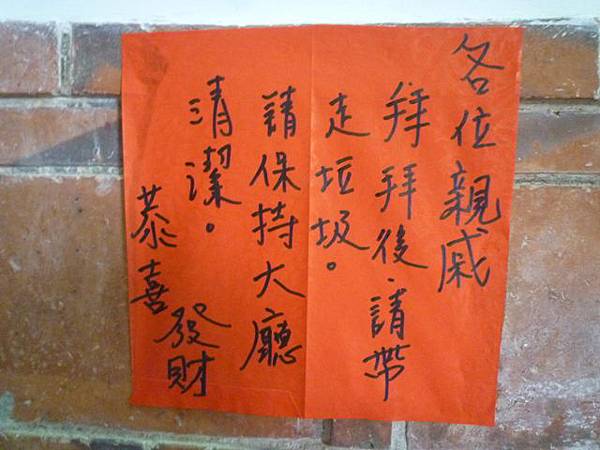 各位親戚
拜拜後,請帶
走垃圾。
請保持大廳
清潔。
恭喜
發財